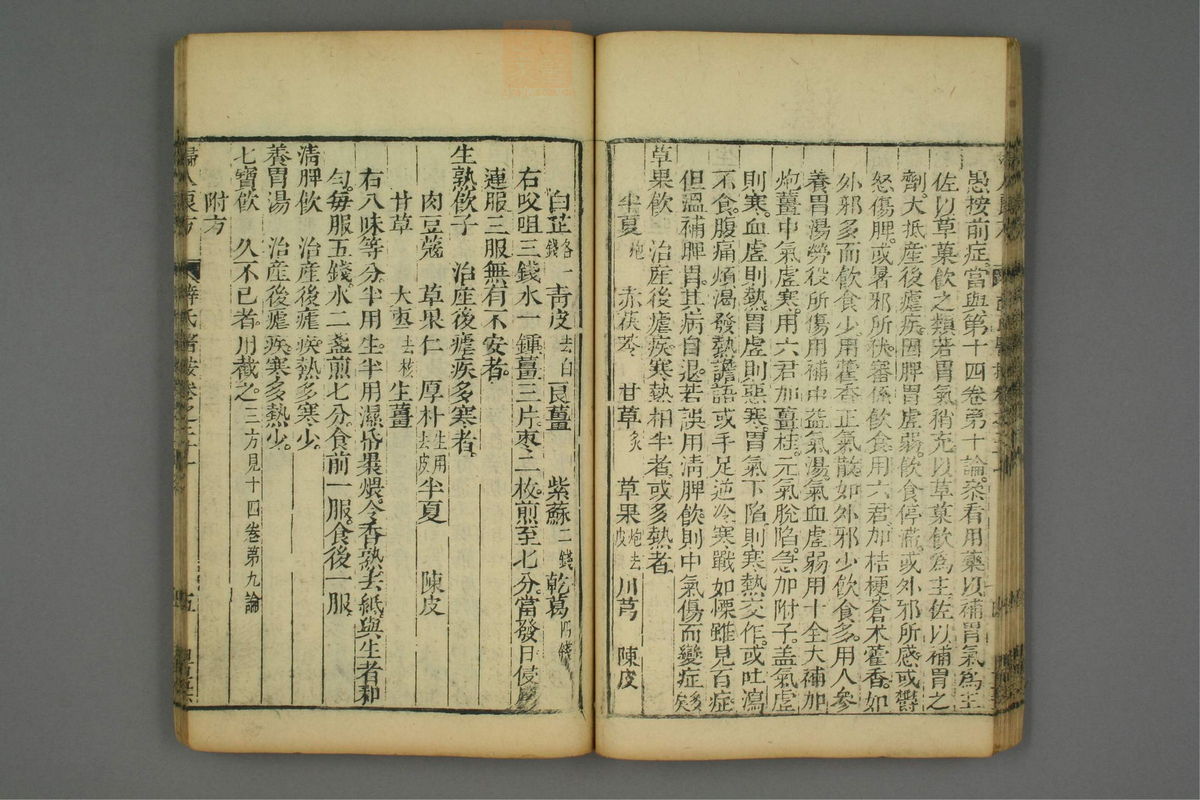 愚按前症當與第十四卷弟十論叅看用藥以補胃氣為主
佐以草菓飲之類若胃氣稍充以草菓飲為主佐以補胃之
劑大抵産後瘧疾因脾胃虛弱飲食停滯或外邪所感或欝
怒傷脾或暑邪所伏審係飲食用六君加桔梗蒼朮藿香如
外邪多而飲食少用藿香正氣散如外邪少飲食多用人參
養胃湯勞役所傷用補中益氣湯氣血虛弱用十全大補加
炮薑中氣虛寒用六君加薑桂元氣脫陷急加附子盖氣虛
則寒血虛則熱胃虛則惡寒胃氣下陷則寒熱交作或吐瀉
不食腹痛煩渴發熱譫語或手足逆冷寒戰如慄雖見百症
但溫補脾胃其病自退若誤用清脾飲則中氣傷而變症多矣
草果飲 治産後瘧疾寒熱相半者或多熱者
半夏炮 赤茯苓 甘草炙 草果炮去皮 川芎 陳皮
白芷各一錢 青皮去白 良薑 紫蘇二錢 乾葛四錢
右㕮咀三錢水一鍾薑三片枣二枚煎至七分當發日侵
連服三服無有不安者
生熟飲子 治産後瘧疾多寒者
肉豆蔻 草果仁 厚朴生用去皮 半夏 陳皮
甘草 大枣去核 生薑
右八味等分半用生半用濕帋裹煨令香熟去紙與生者和
勻每服五錢水二盞煎七分食前一服食後一服
清脾飲 治産後瘧疾熱多寒少
養胃湯 治産後瘧疾寒多熱少
七寶飲 久不已者用截之三方見十四卷第九論
附方
婦人良方 薛氏醫按卷之二十一 五